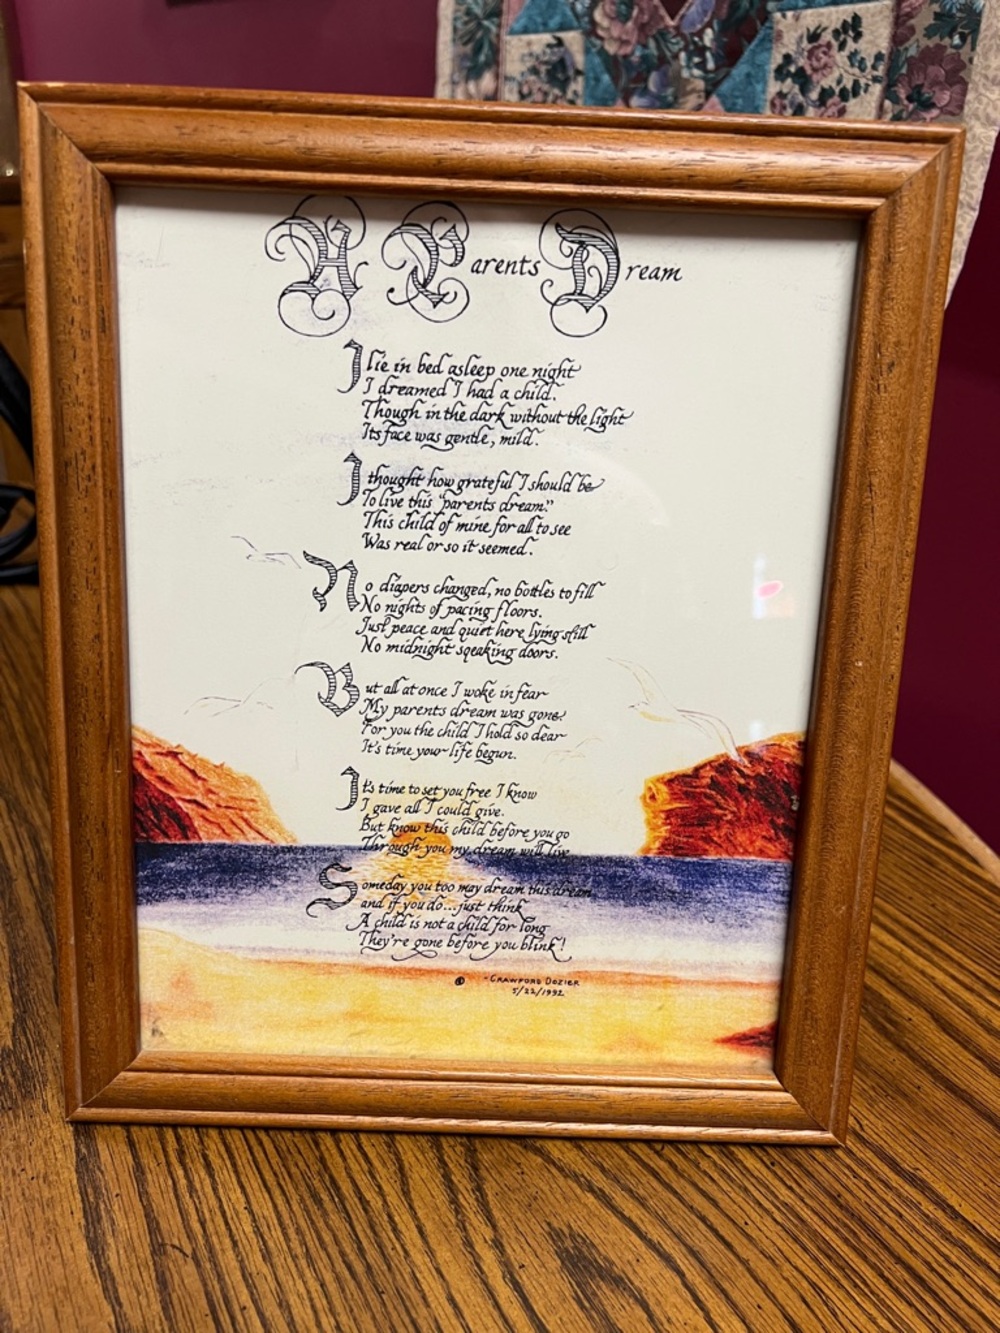 A Parents Dream
I lie in bed asleep one night
I dreamed I had a child.
Though in the dark without the light
Its face was gentle, mild.
I thought how grateful I should be
To live this "parents dream."
This child of mine for all to see
Was real or so it seemed.
No diapers changed, no bottles to fill
No nights of pacing floors.
Just peace and quiet here lying still
No midnight sqeaking doors.
But all at once I woke in fear
My parents dream was gone.
For you the child I hold so dear
It's time your life begun.
It's time to set you free I know
I gave all I could give.
But know this child before you go
Through you my dream will live
Someday you too may dream this dream
and if you do... just think
A child is not a child for long
They're gone before you blink!
© -CRAWFORD DOZIER
5/22/1992